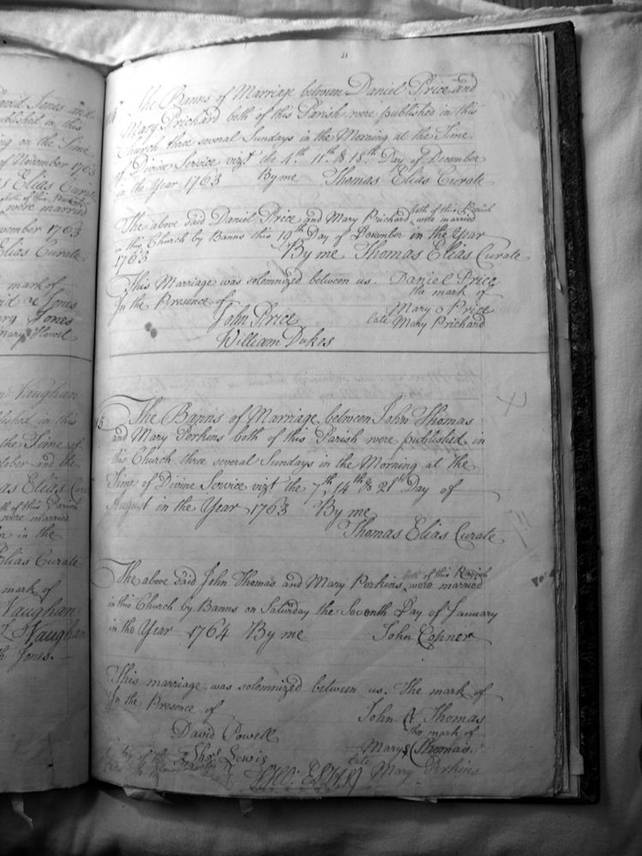 David Jones and
published in this
ing on the Time
of November 1763
Elias Curate
were married
November 1763
Elias Curate
mark of
Jones
Jones
Mary Howel
Vaughan
published in this
the Time of
October and the
as Elias
were married
in the
Elias Curate
mark of
Vaughan
Vaughan
Jones.
The Banns of Marriage between Daniel Price and
Mary Prichard both of this Parish were published in this
Church three several Sundays in the Morning at the Time
of Divine Service vizt the 4th 11th & 18th Day of December
in the Year 1763 By me Thomas Elias Curate
The above said Daniel Price and Mary Prichard both of this Parish were married
in this Church by Banns this 19th Day of December in the Year
1763 By me Thomas Elias Curate
This Marriage was solemnized between us Daniel Price
In the Presence of the mark of
John Price Mary Price
William Dukes late Mary Prichard
The Banns of Marriage between John Thomas
and Mary Perkins both of this Parish were published in
this Church three several Sundays in the Morning at the
Time of Divine Service vizt the 7th 14th & 21st Day of
August in the Year 1763 By me
Thomas Elias Curate
The above said John Thomas and Mary Perkins both of this Parish were married
in this Church by Banns on Saturday the Seventh Day of January
in the Year 1764 By me John
This marriage was solemnized between us. The mark of
In the Presence of John Thomas
David Powell the mark of
Lewis Mary Thomas
late Mary Perkins